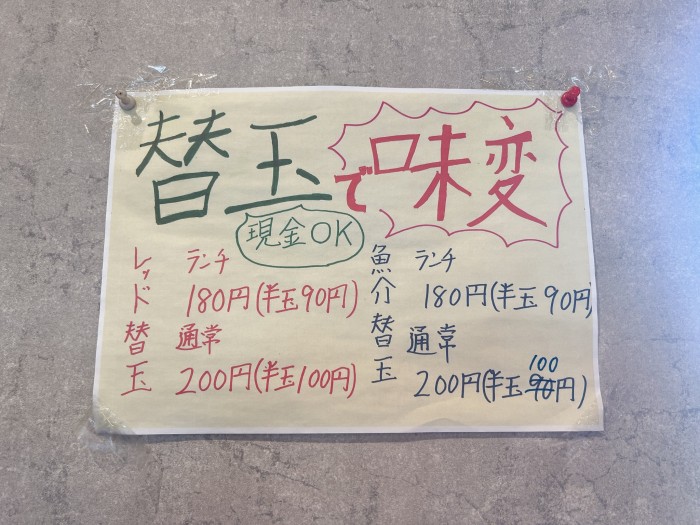 替玉で味変
現金OK
レッド替玉
ランチ
180円(半玉90円)
通常
200円(半玉100円)
魚介替玉
ランチ
180円(半玉90円)
通常
200円(半玉90円)
100